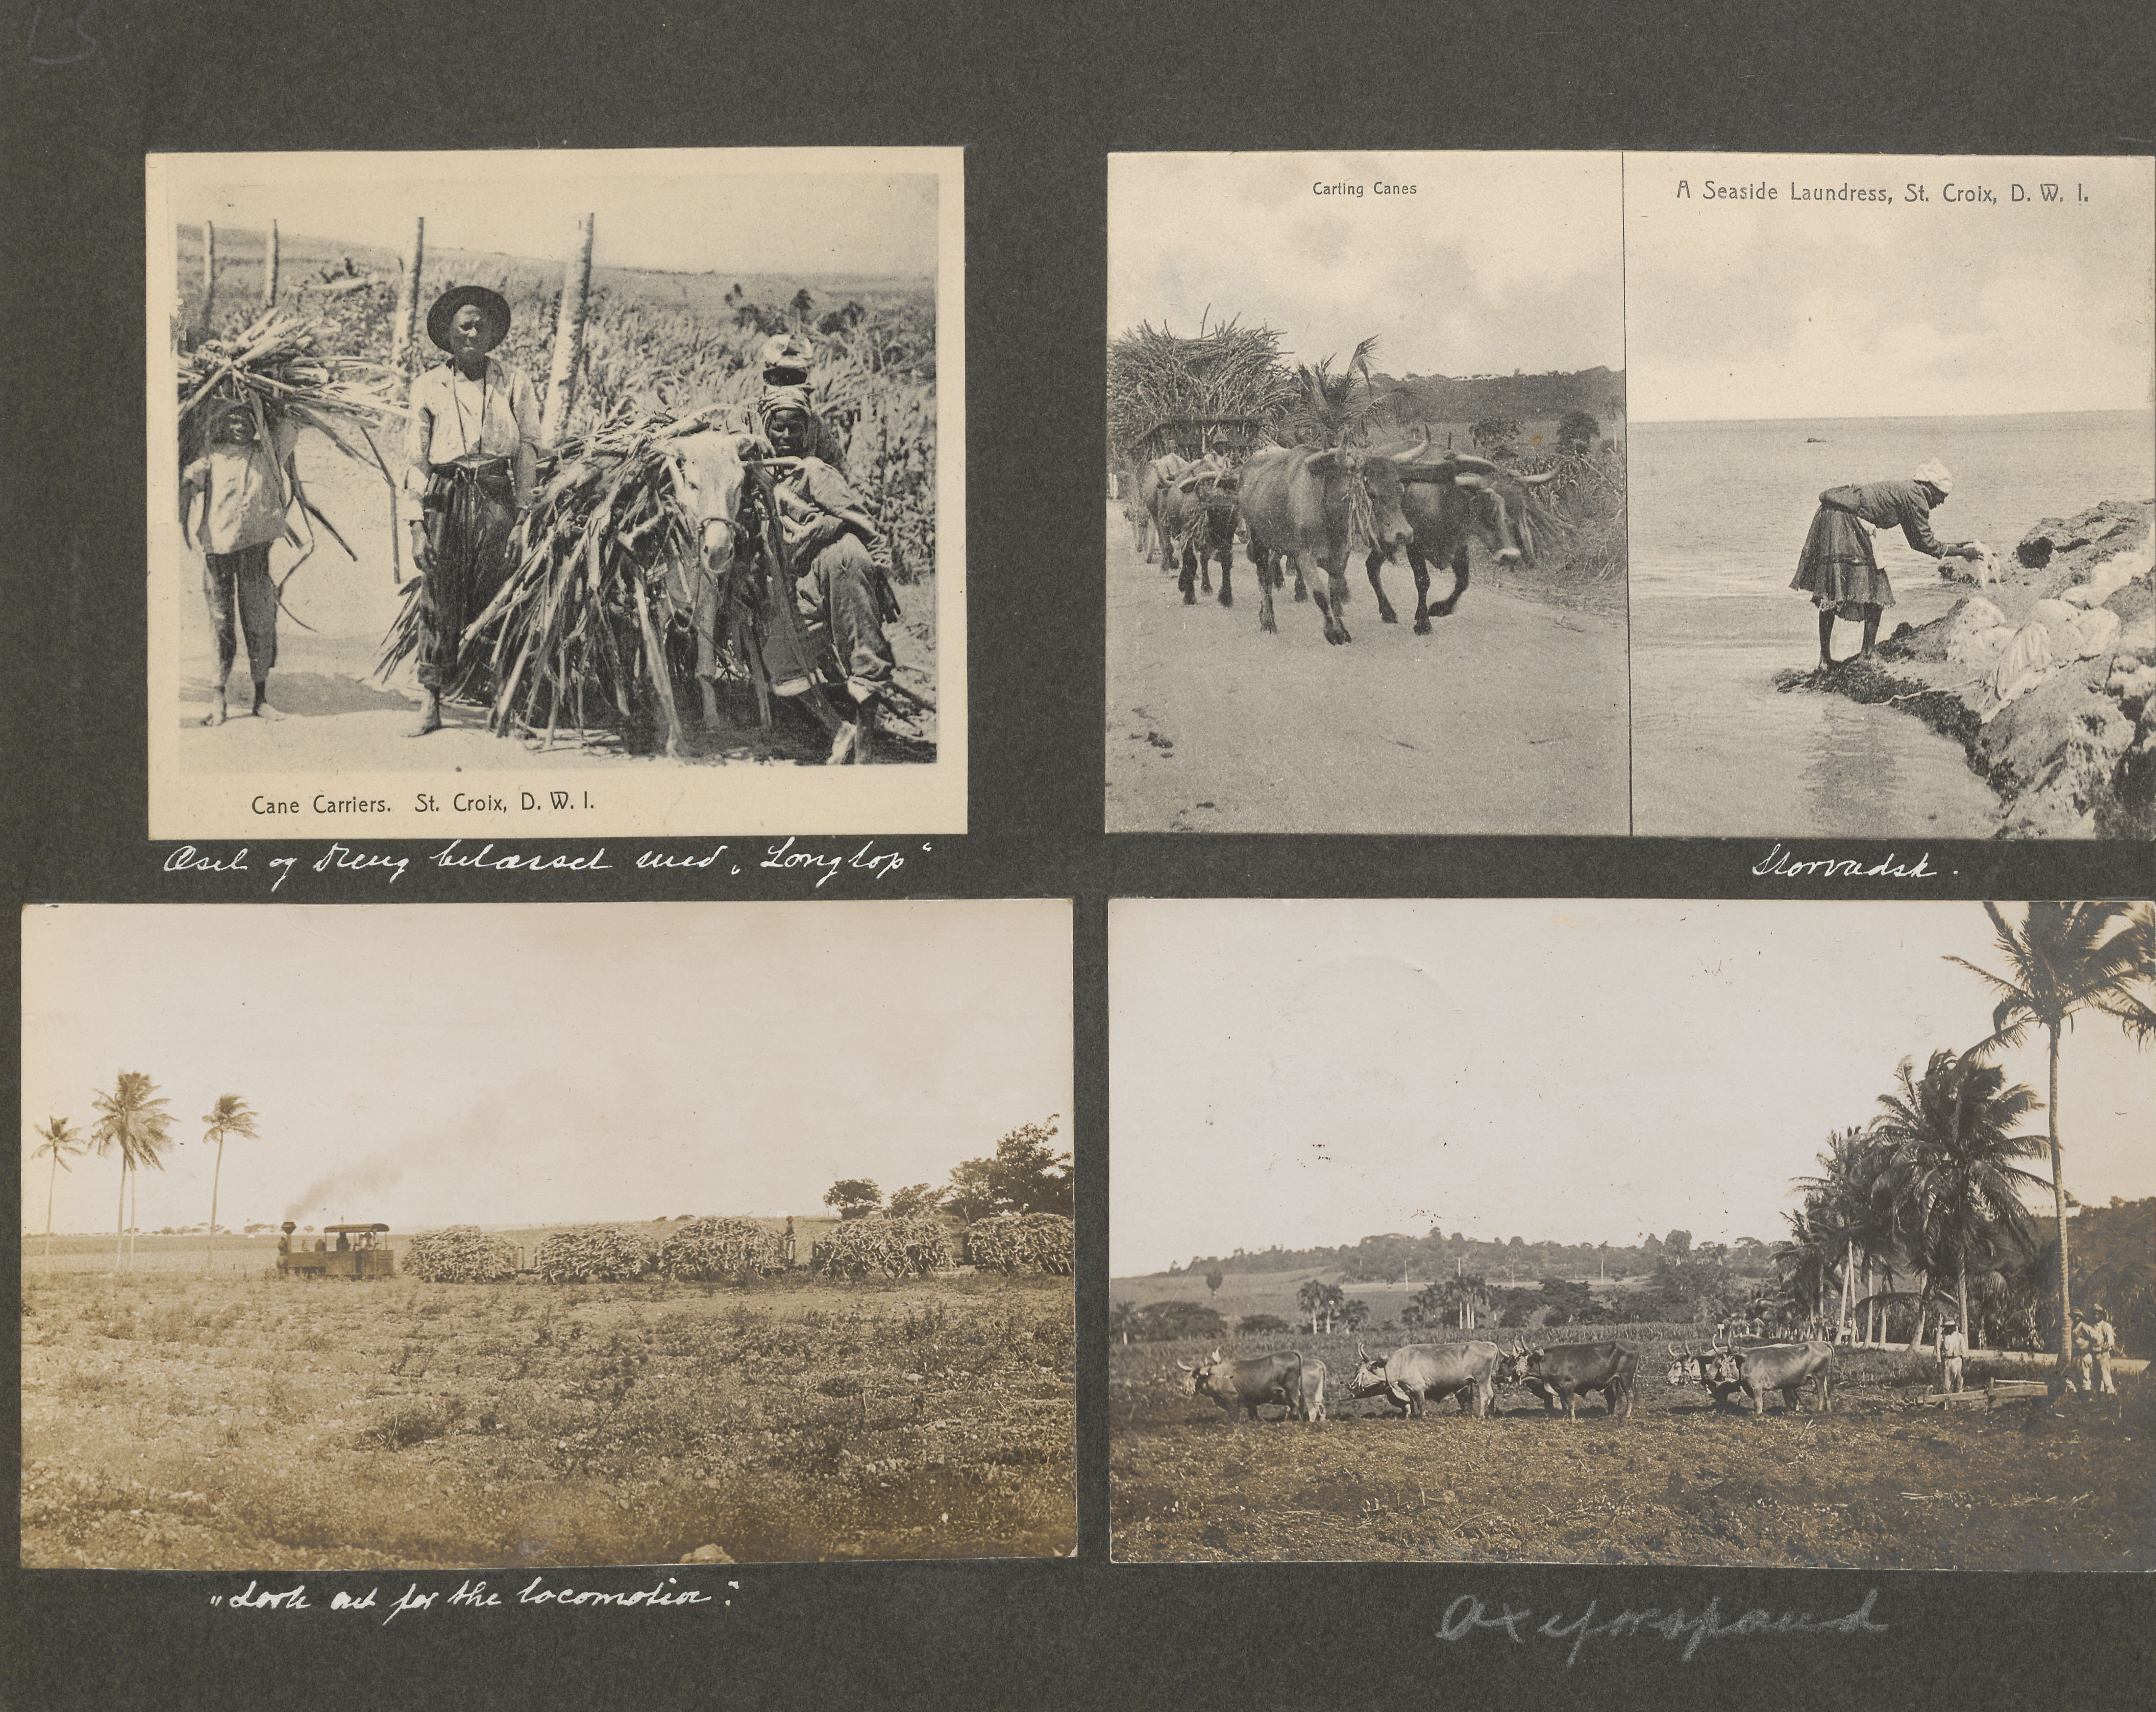 15
Cane Carriers. St. Croix, D. W. I.
Æsel og Dreng belæsset med „Longtop“
Carting Canes
A Seaside Laundress, St. Croix, D. W. I.
Storvadsk.
„Look out for the locomotive“.
Oxeforspand